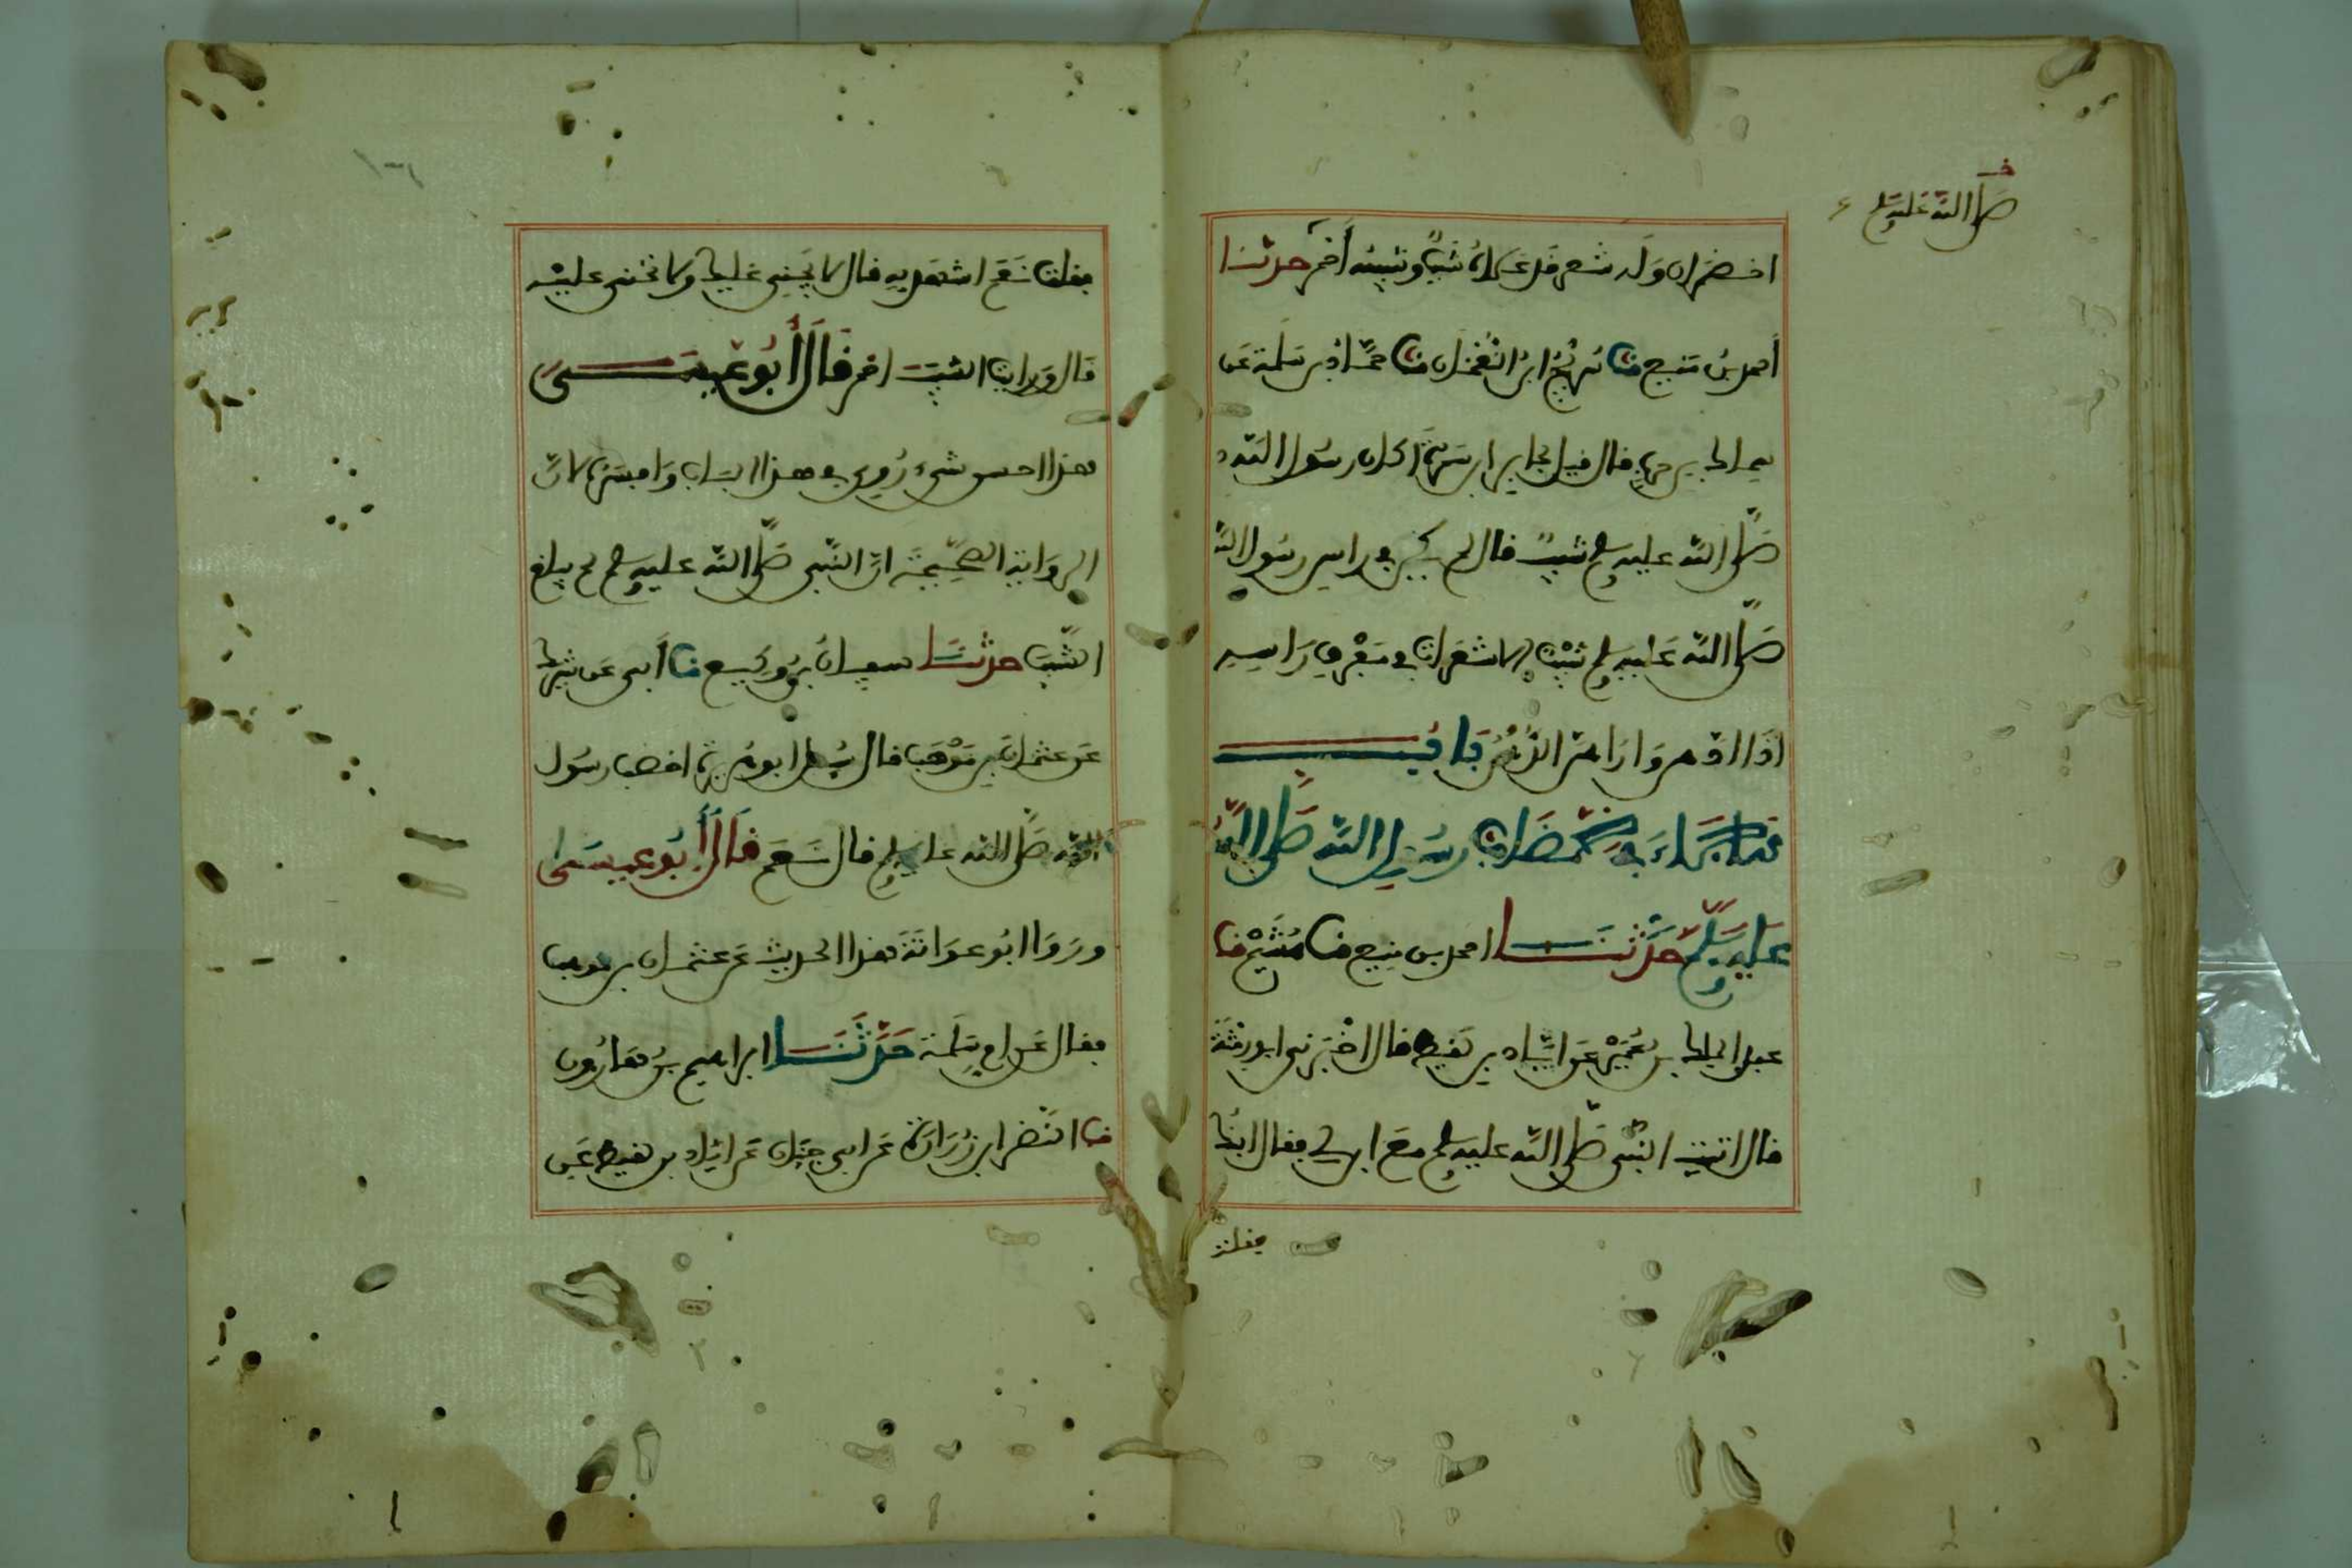 اخضران وله شعر قد علاه شيب وشيبه أحمر حدثنا
أحمد بن منيع نا سريج ابن النعمان نا حماد بن سلمة عن
سماك بن حرب قال قيل لجابر ابن سمرة أكان رسول الله
صلى الله عليه وسلم شيب قال لم يكن في راس رسول الله
صلى الله عليه وسلم شيب الا شعرات في مفرق راسه
اذا ادهن واراهن الدهن باب
ما جاء في خضاب رسول الله صلى الله
عليه وسلم حدثنا احمد بن منيع نا هشيم نا
عبد الملك بن عمير عن اياد بن لقيط قال اخبرني ابو رمثة
قال اتيت النبي صلى الله عليه وسلم مع ابن لي فقال ابنك
فقلت
صلى الله عليه وسلم
فقلت نعم اشهد به قال لا يجني عليك ولا تجني عليه
قال ورايت الشيب احمر قال أبو عيسى
هذا احسن شيء روي في هذا الباب وافسره لان
الرواية الصحيحة ان النبي صلى الله عليه وسلم لم يبلغ
الشيب حدثنا سفيان بن وكيع نا أبي عن شريك
عن عثمان بن موهب قال سئل ابو هريرة اخضب رسول
الله صلى الله عليه وسلم قال نعم قال أبو عيسى
وروا ابو عوانة هذا الحديث عن عثمان بن موهب
فقال عن ام سلمة حدثنا ابراهيم بن هارون
نا النضر ابن زرارة عن ابي جناب عن اياد بن لقيط عن